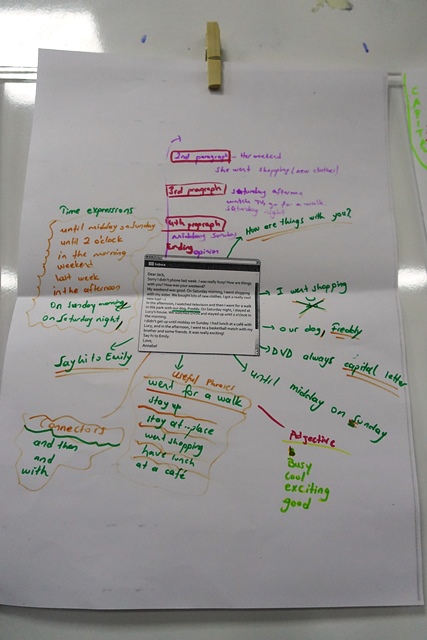 2nd paragraph - Her weekend
She went shopping (new clothes)
3rd paragraph
Saturday night
4th pragraph
Ending opinion
Time expressions
until midday saturday
until 2 o'clock
in the morning
weekend
last week
in the afternoon
on Sunday morning
on Saturday night,
How are things with you?
Inbox
Dear Jack,
Sorry I didn't phone last week. I was really busy! How are things
with you? How was your weekend?
My weekend was good. On Saturday morning, I went shopping
with my sister. We bought lots of new clothes. I got a really
In the afternoon, I watched television and then I went for a walk
in the park with our dog, Freddy. On Saturday night, I stayed at
Lucy's house. We watched DVDs and stayed up until 2 o'clock in
the morning.
I didn't get up until midday on Sunday. I had lunch at a café with
Lucy, and in the afternoon, I went to a basketball match with my
brother and some friends. It was really exciting!
Say hi to Emily.
Love,
Annabel
I went shopping
our dog, Freddy
DVD always capital letter
until midday on Sunday
Say hi to Emily
Useful Phrases
went for a walk
stay up
stay at... place
went shopping
have lunch
at a café
Connectors
and then
and
with
Adjective
Busy
cool
exciting
good